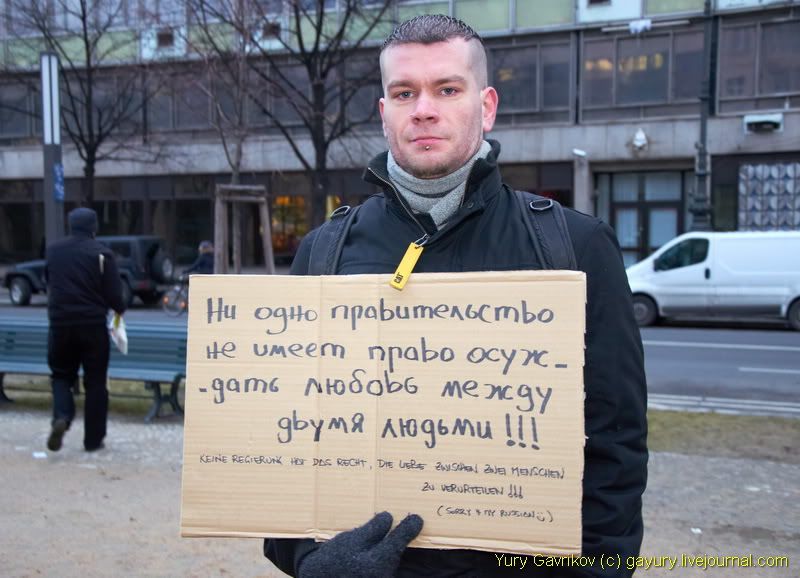 Ни одно правительство
не имеет право осуж-
-дать любовь между
двумя людьми!!!
KEINE REGIERUNG HAT DAS RECHT, DIE LIEBE ZWISCHEN ZWEI MENSCHEN
ZU VERURTEILEN!!!
(SORRY 4 MY RUSSIAN ;))
Yury Gavrikov (c) gayury.livejournal.com